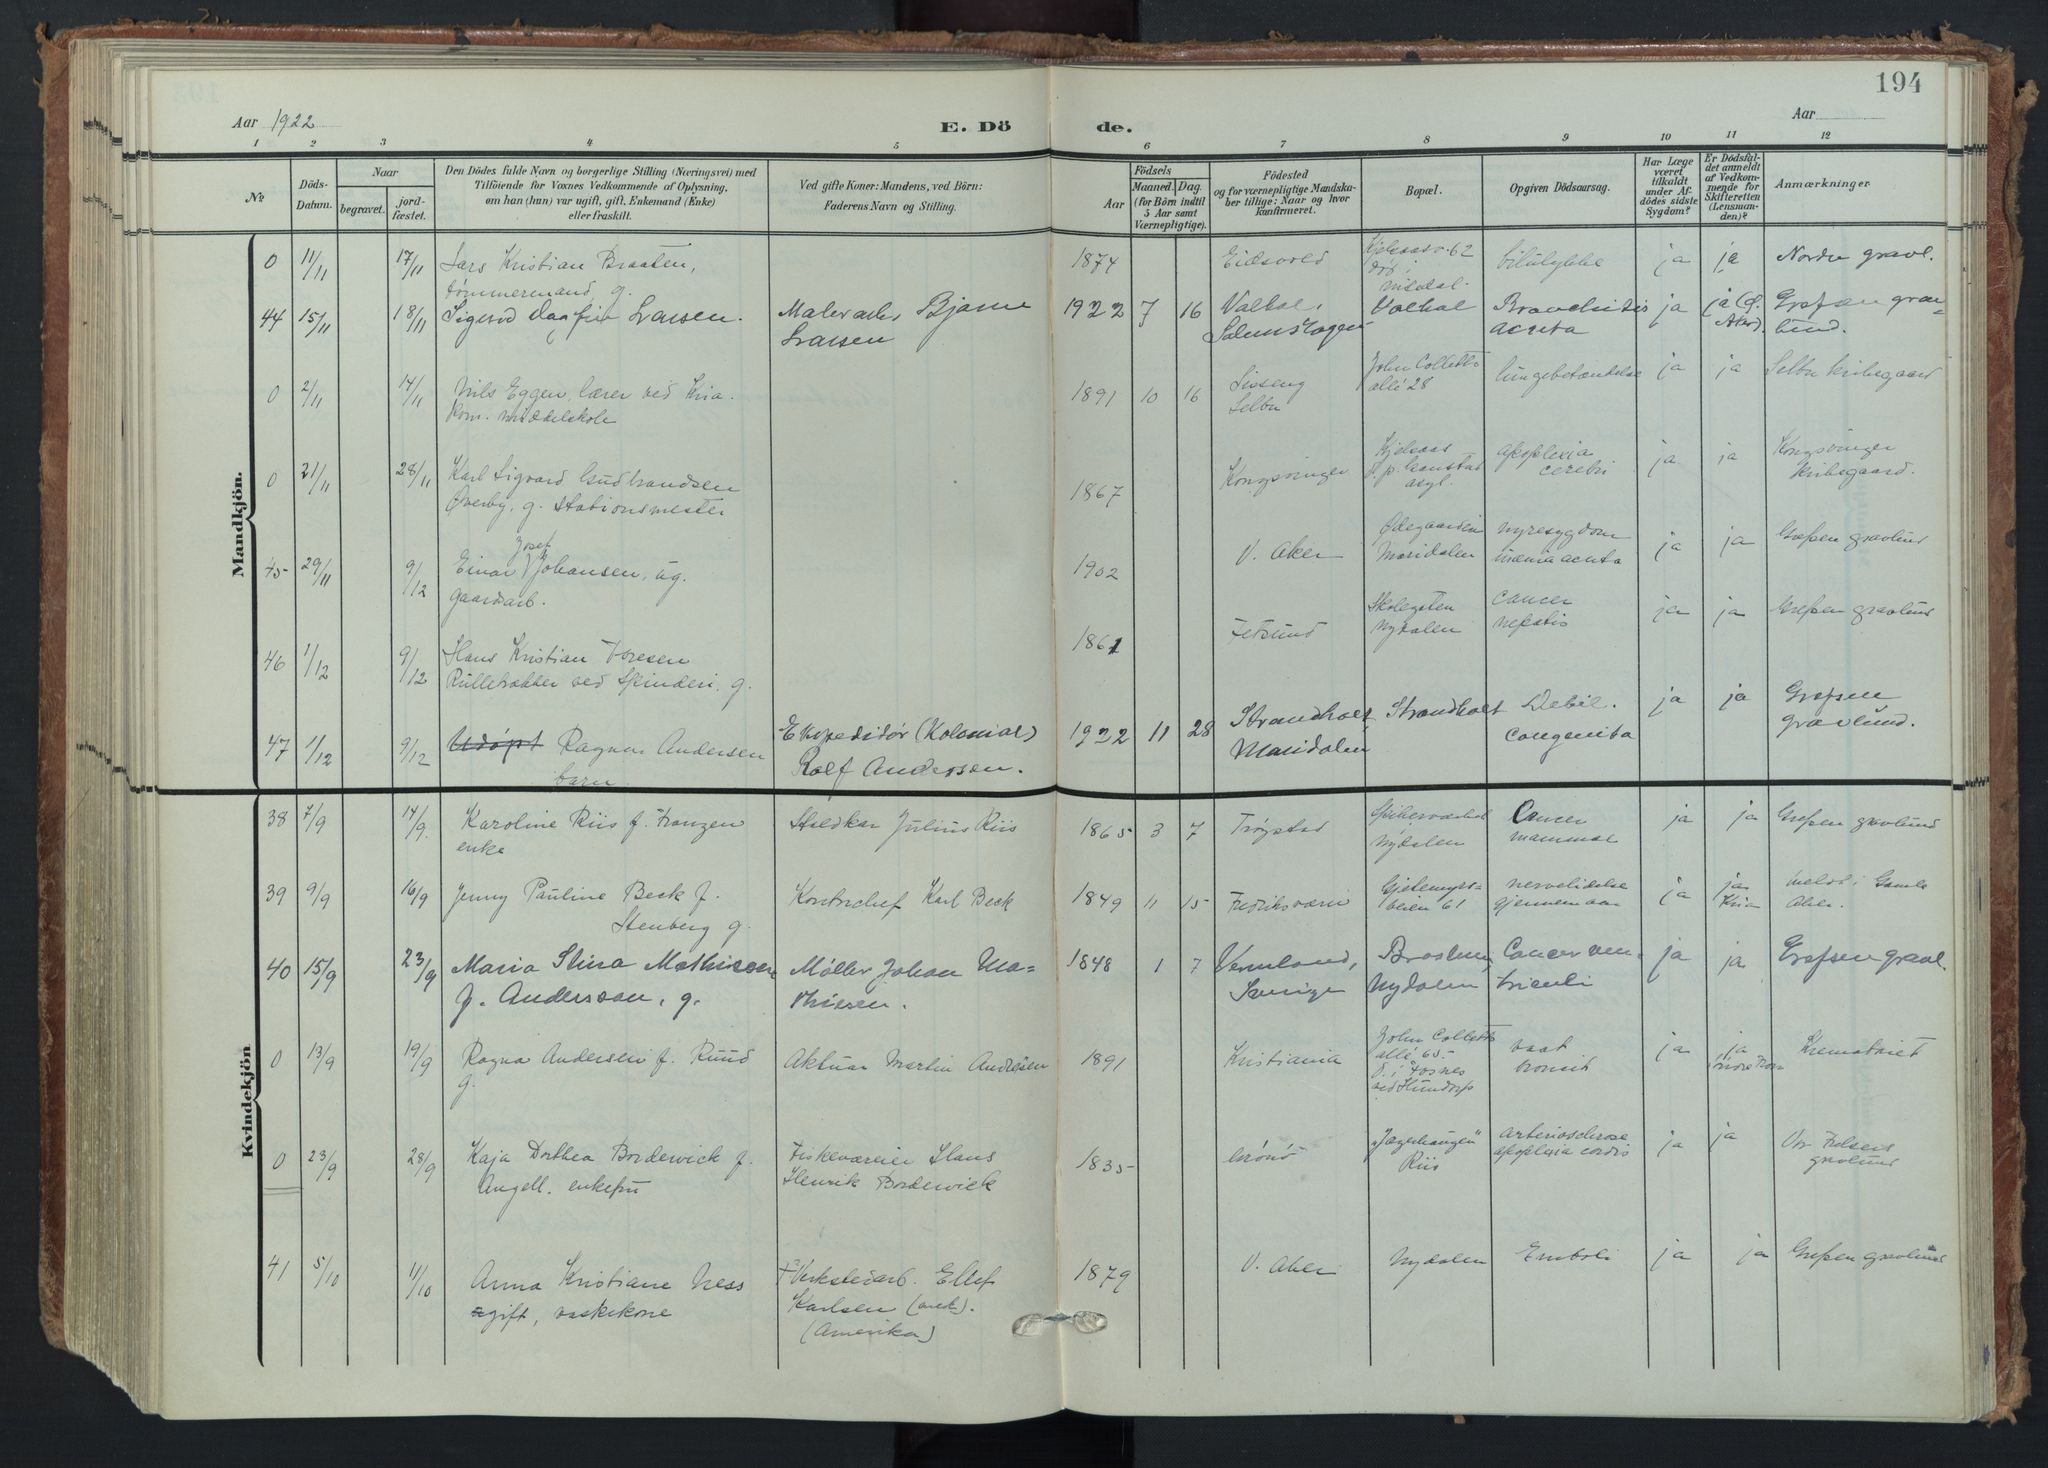 194
Aar 1922
E. Dö
de.
Aar
1 2 3 4 5 6 7 8 9 10 11 12
№
Döds-
Datum.
Naar
begravet.
jord-
fæstet.
Den Dödes fulde Navn og borgerlige Stilling (Næringsvei) med
Tilföiende for Voxnes Vedkommende af Oplysning,
om han (hun) var ugift, gift, Enkemand (Enke)
eller fraskilt.
Ved gifte Koner: Mandens, ved Börn:
Faderens Navn og Stilling.
Födsels
Aar
Maaned. Dag.
(for Börn indtil
5 Aar samt
Værnepligtige).
Födested
og for værnepligtige Mandska-
ber tillige: Naar og hvor
konfirmeret.
Bopæl.
Opgiven Dödsaarsag.
Har Læge
været
tilkaldt
under Af-
dödes sidste
Sygdom?
Er Dödsfal-
det anmeldt
af Vedkom-
mende for
Skifteretten
(Lensman-
den)?
Anmærkninger
Mandkjön.
0 11/11 17/11 Lars Kristian Braaten,
tømmermand, g.
1874 Eidsvold
Kjelsaasv. 62
død i
Nitedal.
ja ja Nordre gravl.
44 15/11 18/11 Sigurd Dagfin Larsen.
Malerarb. Bjarne
Larsen
1922 7 16
Valhal Bronchitis
acuta
ja ja
Aker).
Grefsen grav-
lund.
0 2/11 14/11 Nils Eggen, lærer ved Kria.
kom. middelskole
1891 10 16
Selbu
John Colletts
allé 28
lungebetændelse ja ja Selbu kirkegaard
0 21/11 28/11 Karl Sigvard Gudbrandsen
Øverby, g. Stationsmester
1867 Kongsvinger
Kjelsaas
d. p. Gaustad
asyl.
apoplexia
cerebri
ja ja
Kongsvinger
kirkegaard.
45 29/11 9/12
Josef
Einar Johansen, ug.
gaardsarb.
1902 V. Aker
Ødegaarden
Maridalen
nyresygdom
uræmia acuta
ja ja Grefsen gravlund
46 1/12 9/12 Hans Kristian Toresen
ved Spinderi, g.
1861 Fetsund
Nydalen
Cancer
ja ja Grefsen gravlund
47 1/12 9/12 Udøpt Ragnar Andersen
barn
Ekspeditør (Kolonial)
Rolf Andersen.
1922 11 28 Strandholt
Maridalen
Strandholt Debil.
Congenita
ja ja Grefsen
gravlund.
Kvindekjön
38 7/9 14/9. Karoline Riis f. Franzen
enke
Staldkar Julius Riis
1865 3 7 Trøgstad
Spikerverket
Nydalen
Cancer
mammae
ja ja Grefsen gravlund
39 9/9 16/9 Jenny Pauline Beck f.
Stenberg g.
Kontorchef Karl Beck
1849 11 15 Fredriksværn
Gjetemyrs-
veien 61
nervelidelse
gjennem aar
ja ja
Kria
meldt i Gamle
Aker.
40 15/9 23/9 Maria Stina Mathisen
f. Andersson, g.
Møller Johan Ma-
thisen.
1848 1 7 Vermland,
Sverige
Nydalen
Cancer ven-
triculi
ja ja Grefsen gravl.
0 13/9 19/9 Ragna Andersen f. Ruud
g.
Aktuar Martin Andresen
1891 Kristiania
John Colletts
allé 65
d. i Fosnes
ved Hundorp
ja ja
Krematoriet
0 23/9 28/9 Kaja Dorthea Bordewick f.
Angell. enkefru
Fiskeværeier Hans
Henrik Bordewick
1835
„Jægerhaugen“
Riis
arteriosclerose
apoplexia cordis
ja ja Vor Frelsers
gravlund
41 5/10 11/10 Anna Kristiane Ness
gift, vaskekone
F. Verkstedarb. Ellef
Karlsen
(Amerika)
1879 V. Aker Nydalen Emboli ja ja Grefsen gravlund